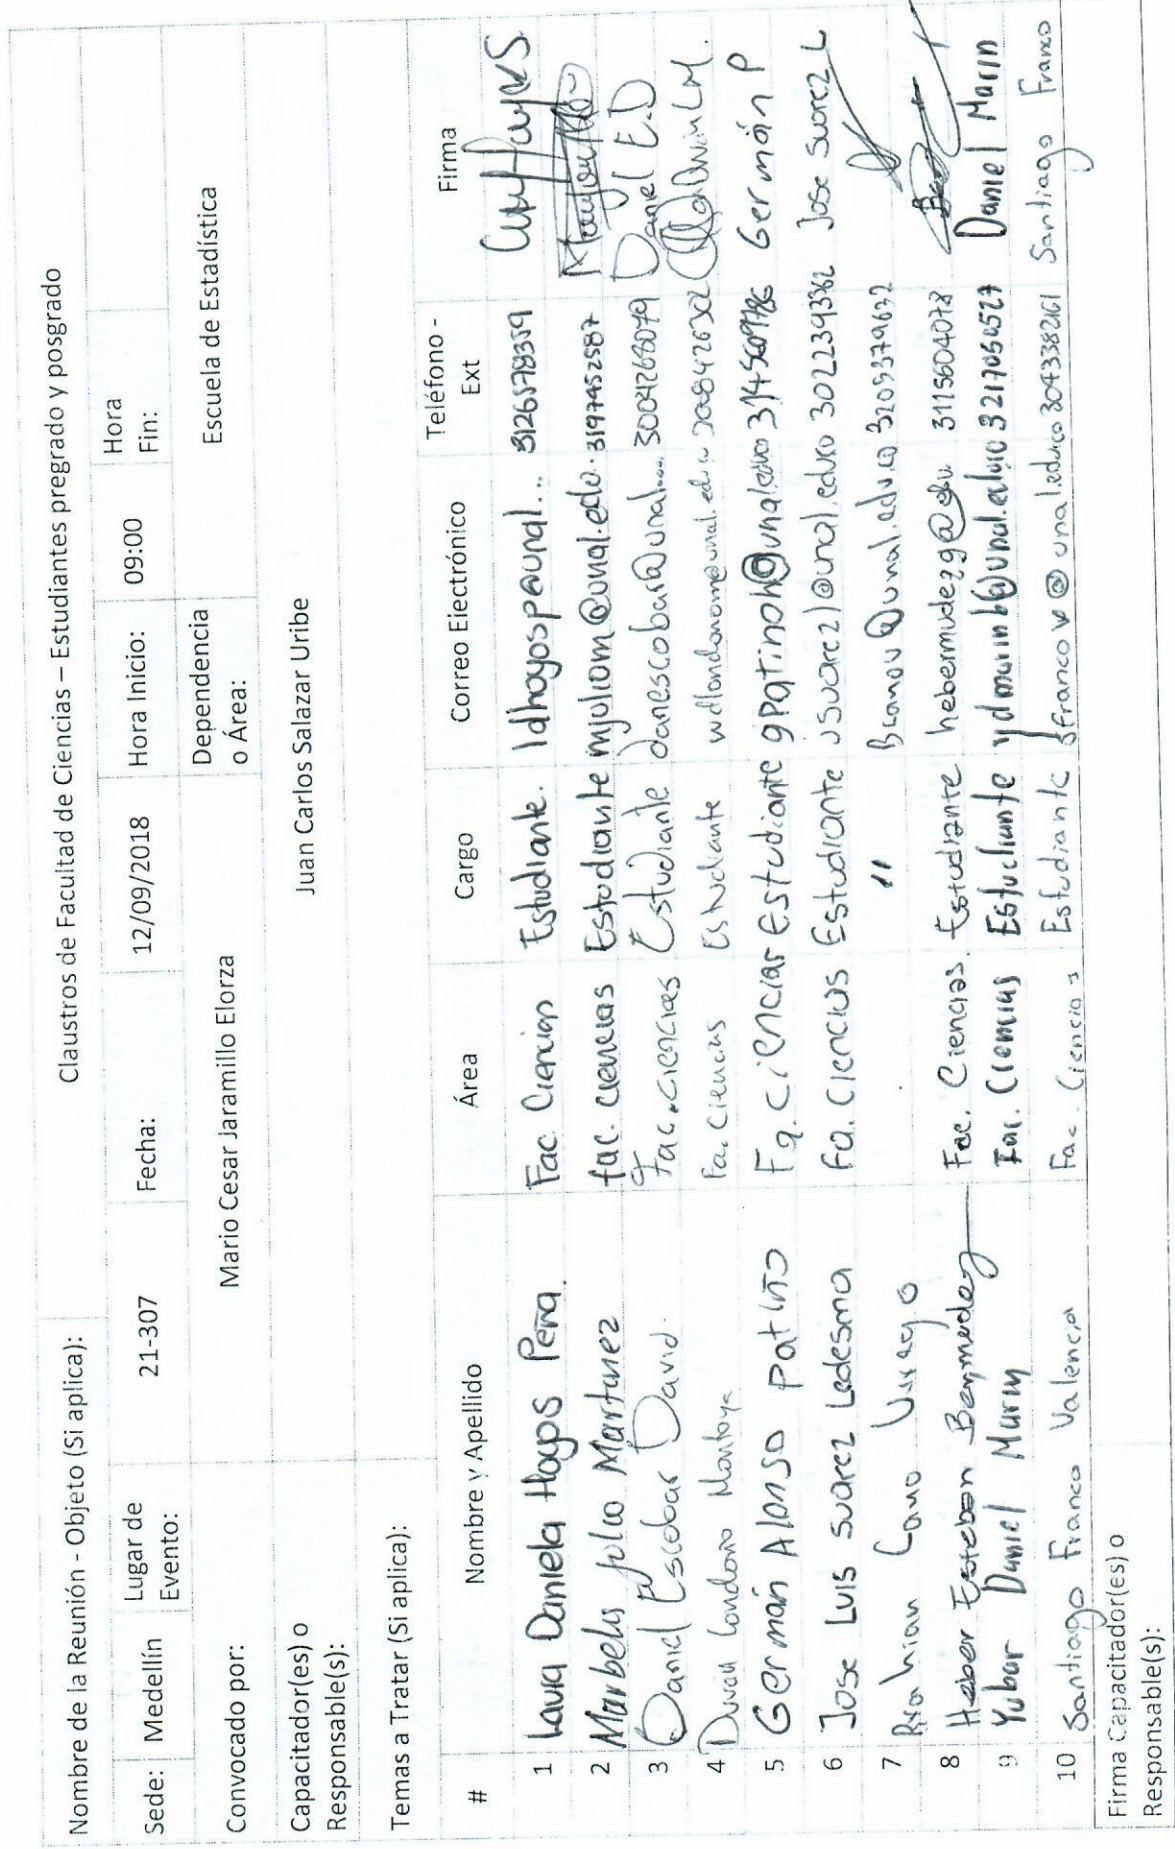 Nombre de la Reunión - Objeto (Si aplica): Claustros de Facultad de Ciencias – Estudiantes pregrado y posgrado
Sede: Medellín Lugar de Evento: 21-307 Fecha: 12/09/2018 Hora Inicio: 09:00 Hora Fin:
Convocado por: Mario Cesar Jaramillo Elorza Dependencia o Área: Escuela de Estadística
Capacitador(es) o Responsable(s): Juan Carlos Salazar Uribe
Temas a Tratar (Si aplica):
# Nombre y Apellido Área Cargo Correo Electrónico Teléfono - Ext Firma
1 Laura Daniela Hoyos Peña. Fac. Ciencias Estudiante. ldhoyosp@unal... 3126578359
2 Marbelis Julio Martinez fac. ciencias Estudiante mjuliom@unal.edo. 3197452587
3 Daniel Escobar David. Fac. ciencias Estudiante danescobar@unal... 3004268079 Daniel E.D
4 Duvan Londoño Montoya Fa. Ciencias Estudiante
5 Germán Alonso Patiño Fa. Ciencias Estudiante gpatinoh@unal.edu.co Germán P
6 Jose Luis Suarez Ledesma Fa. Ciencias Estudiante jsuarezl@unal.edu.co 3022393362 Jose Suarez L
7 Cano Usuga " @unal.edu.co 3205379632
8 Heber Esteban Bermudez Fac. Ciencias. Estudiante hebermudezg@ 3115604078
9 Yubar Daniel Marin Fac. Ciencias Estudiante ydmarinb@unal.edu.co 3217050527 Daniel Marin
10 Santiago Franco Valencia Fac. Ciencias Estudiante sfrancov@unal.edu.co 3043382161 Santiago Franco
Firma Capacitador(es) o Responsable(s):